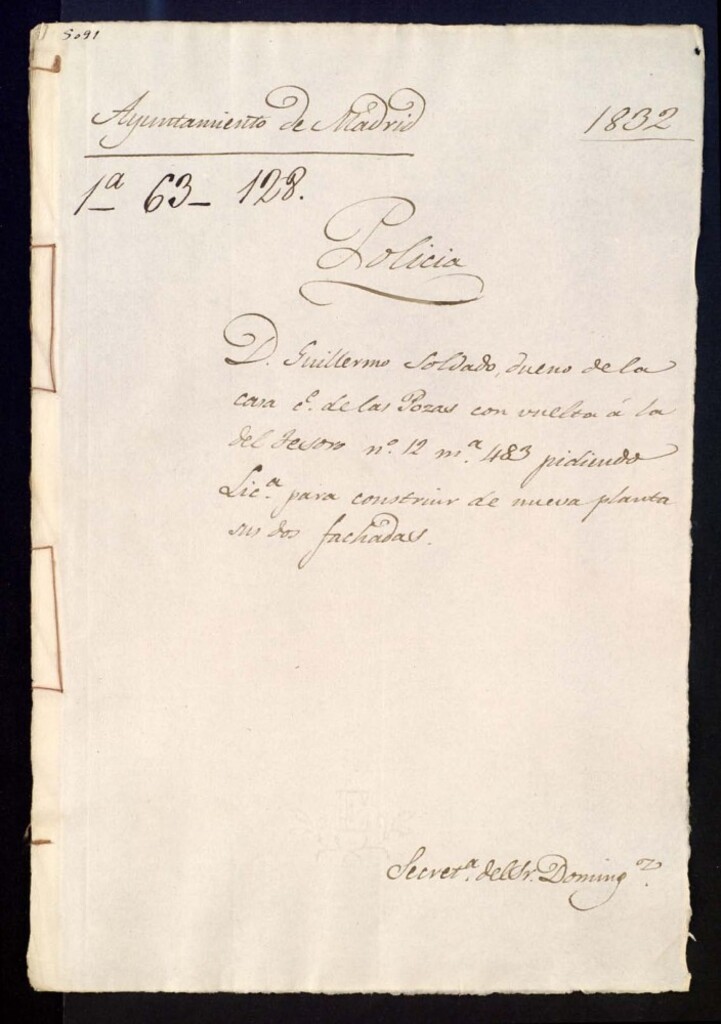 5091
Ayuntamiento de Madrid
1832
1ª 63- 128.
Policia
D. Guillermo Soldado, dueno de la
casa c.e de las Pozas con vuelta á la
del Tesoro nº. 12 m.ª 483 pidiendo
Lic.ª para construir de nueva planta
sus dos fachadas.
Secret.ª del Sr. Doming.oz